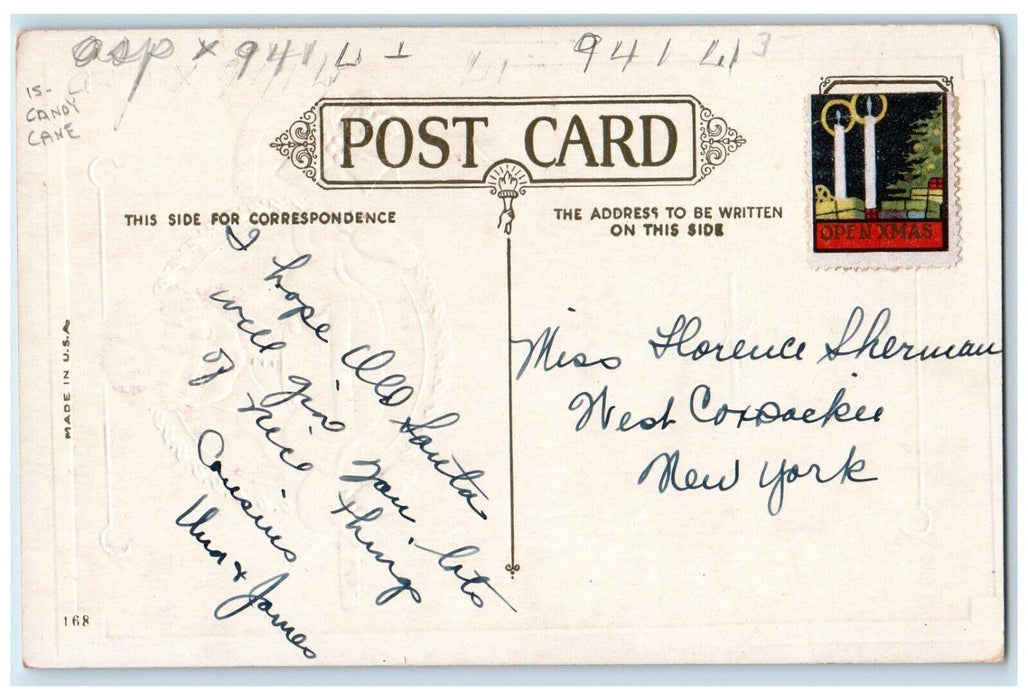 asp x 94 1 4 1
94 1 4 3-
15-
CANDY
CANE
POST CARD
THIS SIDE FOR CORRESPONDENCE
THE ADDRESS TO BE WRITTEN
ON THIS SIDE
OPEN XMAS
I hope Old Santa
will give you lots
of nice things
Cousins
& James
Miss Florence Sherman
West Coxsackie
New York
MADE IN U.S.A.
168